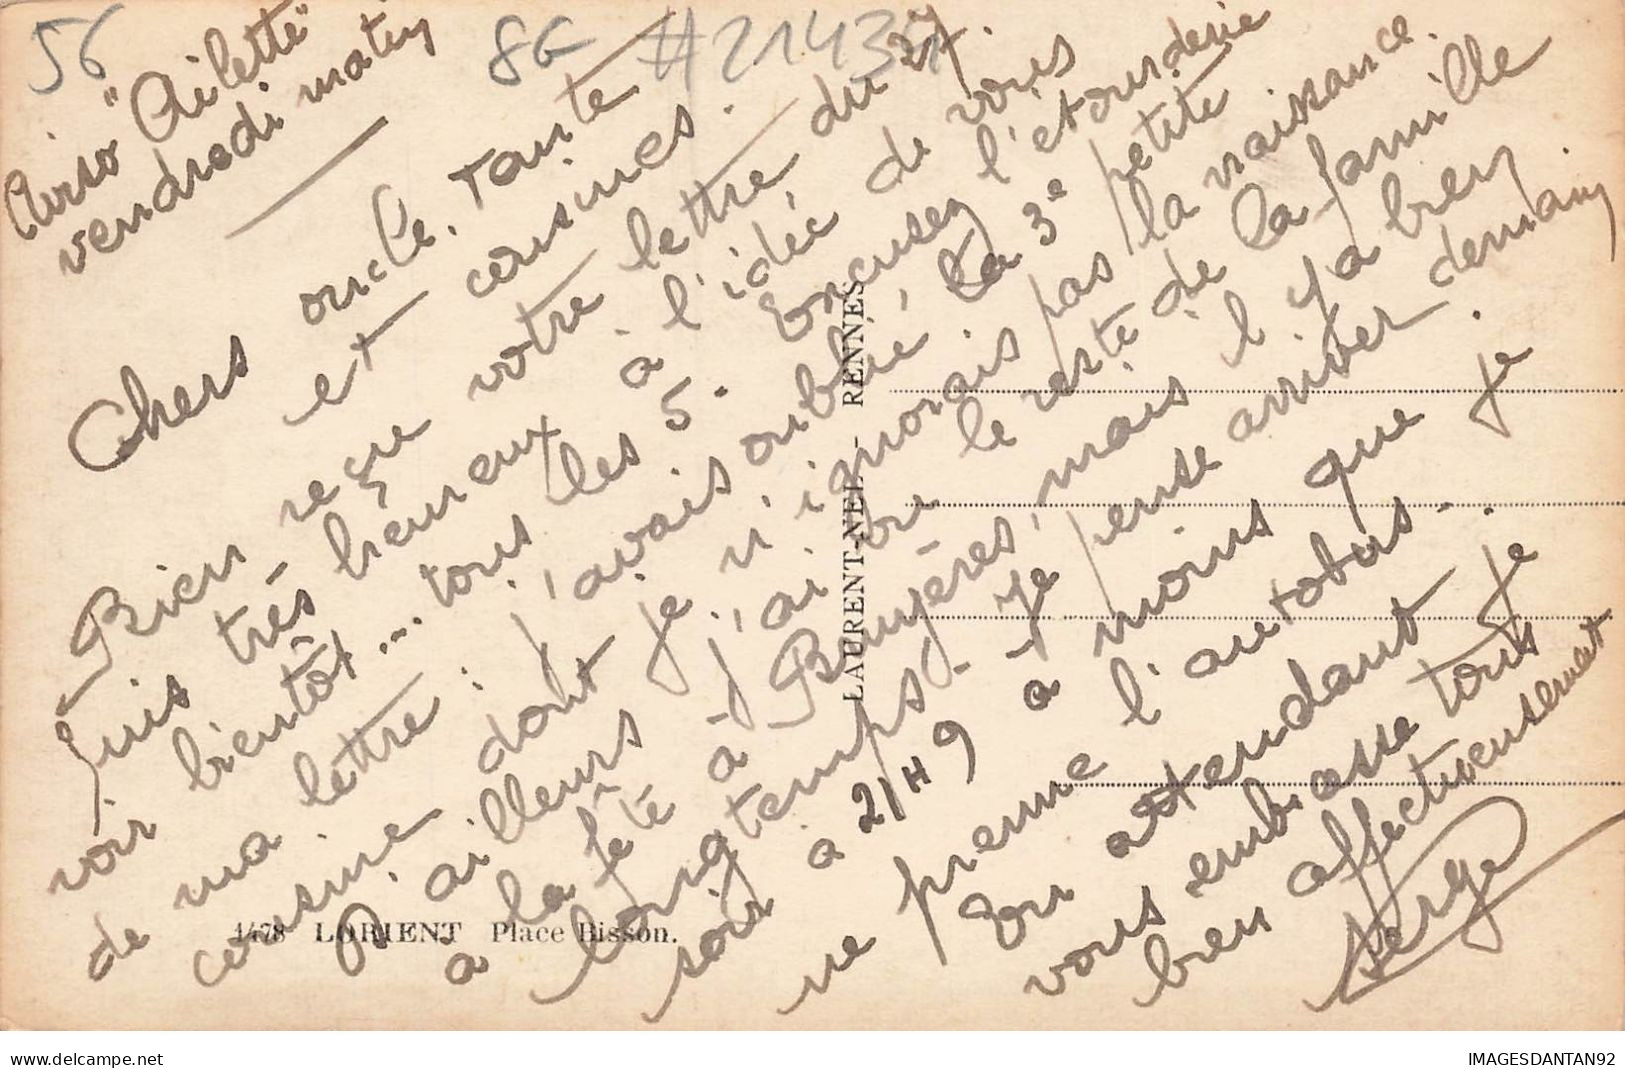 56
86 #21434
Aviso "Ailette"
vendredi matin
Chers oncle, tante
et cousines.
Bien reçu votre lettre du 27.
Suis très heureux à l'idée de vous
voir bientôt... tous les 5. Excusez l'étourderie
de ma lettre : j'avais oublié la 3e petite
cousine dont je n'ignorais pas la naissance.
D'ailleurs j'ai vu le reste de la famille
à la fête à Bruyères, mais il y a bien
longtemps - Je pense arriver demain
soir à 21H9 à moins que je
ne prenne l'autobus...
En attendant je
vous embrasse tous
bien affectueusement
Serge
LAURENT-NEL - RENNES
4478 LORIENT Place Bisson.
delcampe.net
IMAGESDANTAN92